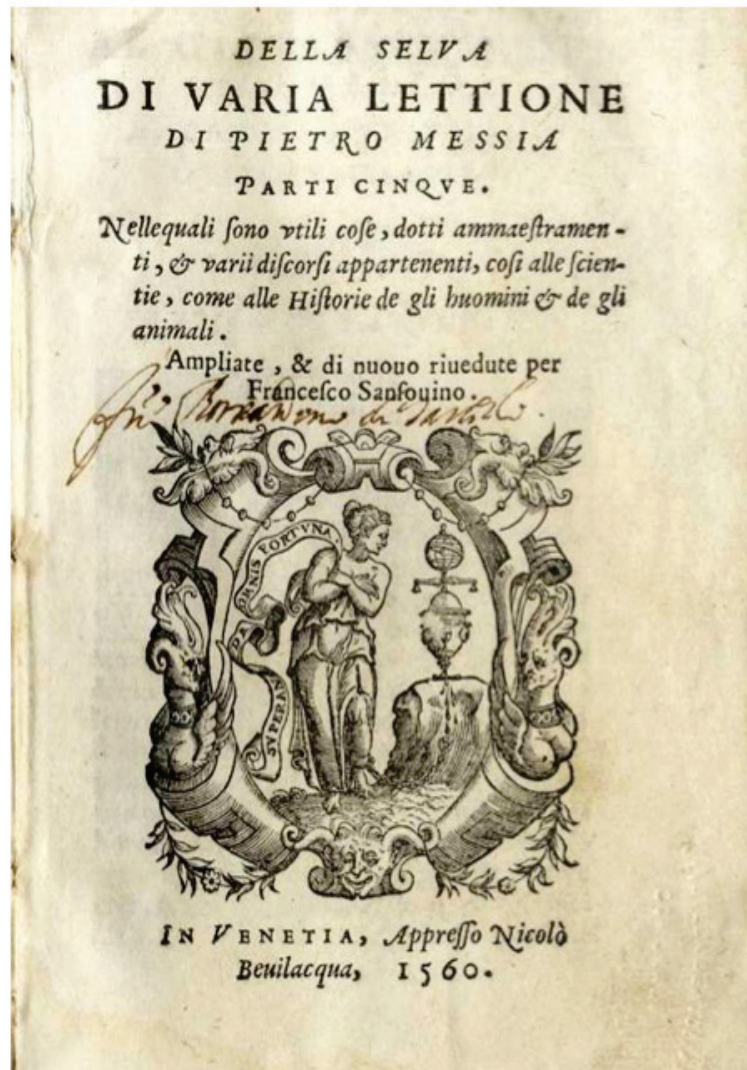 DELLA SELVA
DI VARIA LETTIONE
DI PIETRO MESSIA
PARTI CINQVE.
Nellequali ſono vtili coſe, dotti ammaeſtramen-
ti, & varii diſcorſi appartenenti, coſi alle ſcien-
tie, come alle Hiſtorie de gli huomini & de gli
animali.
Ampliate, & di nuouo riuedute per
Franceſco Sanſouino.
SVPERANDA OMNIS FORTVNA.
IN VENETIA, Appreſſo Nicolò
Beuilacqua, 1560.